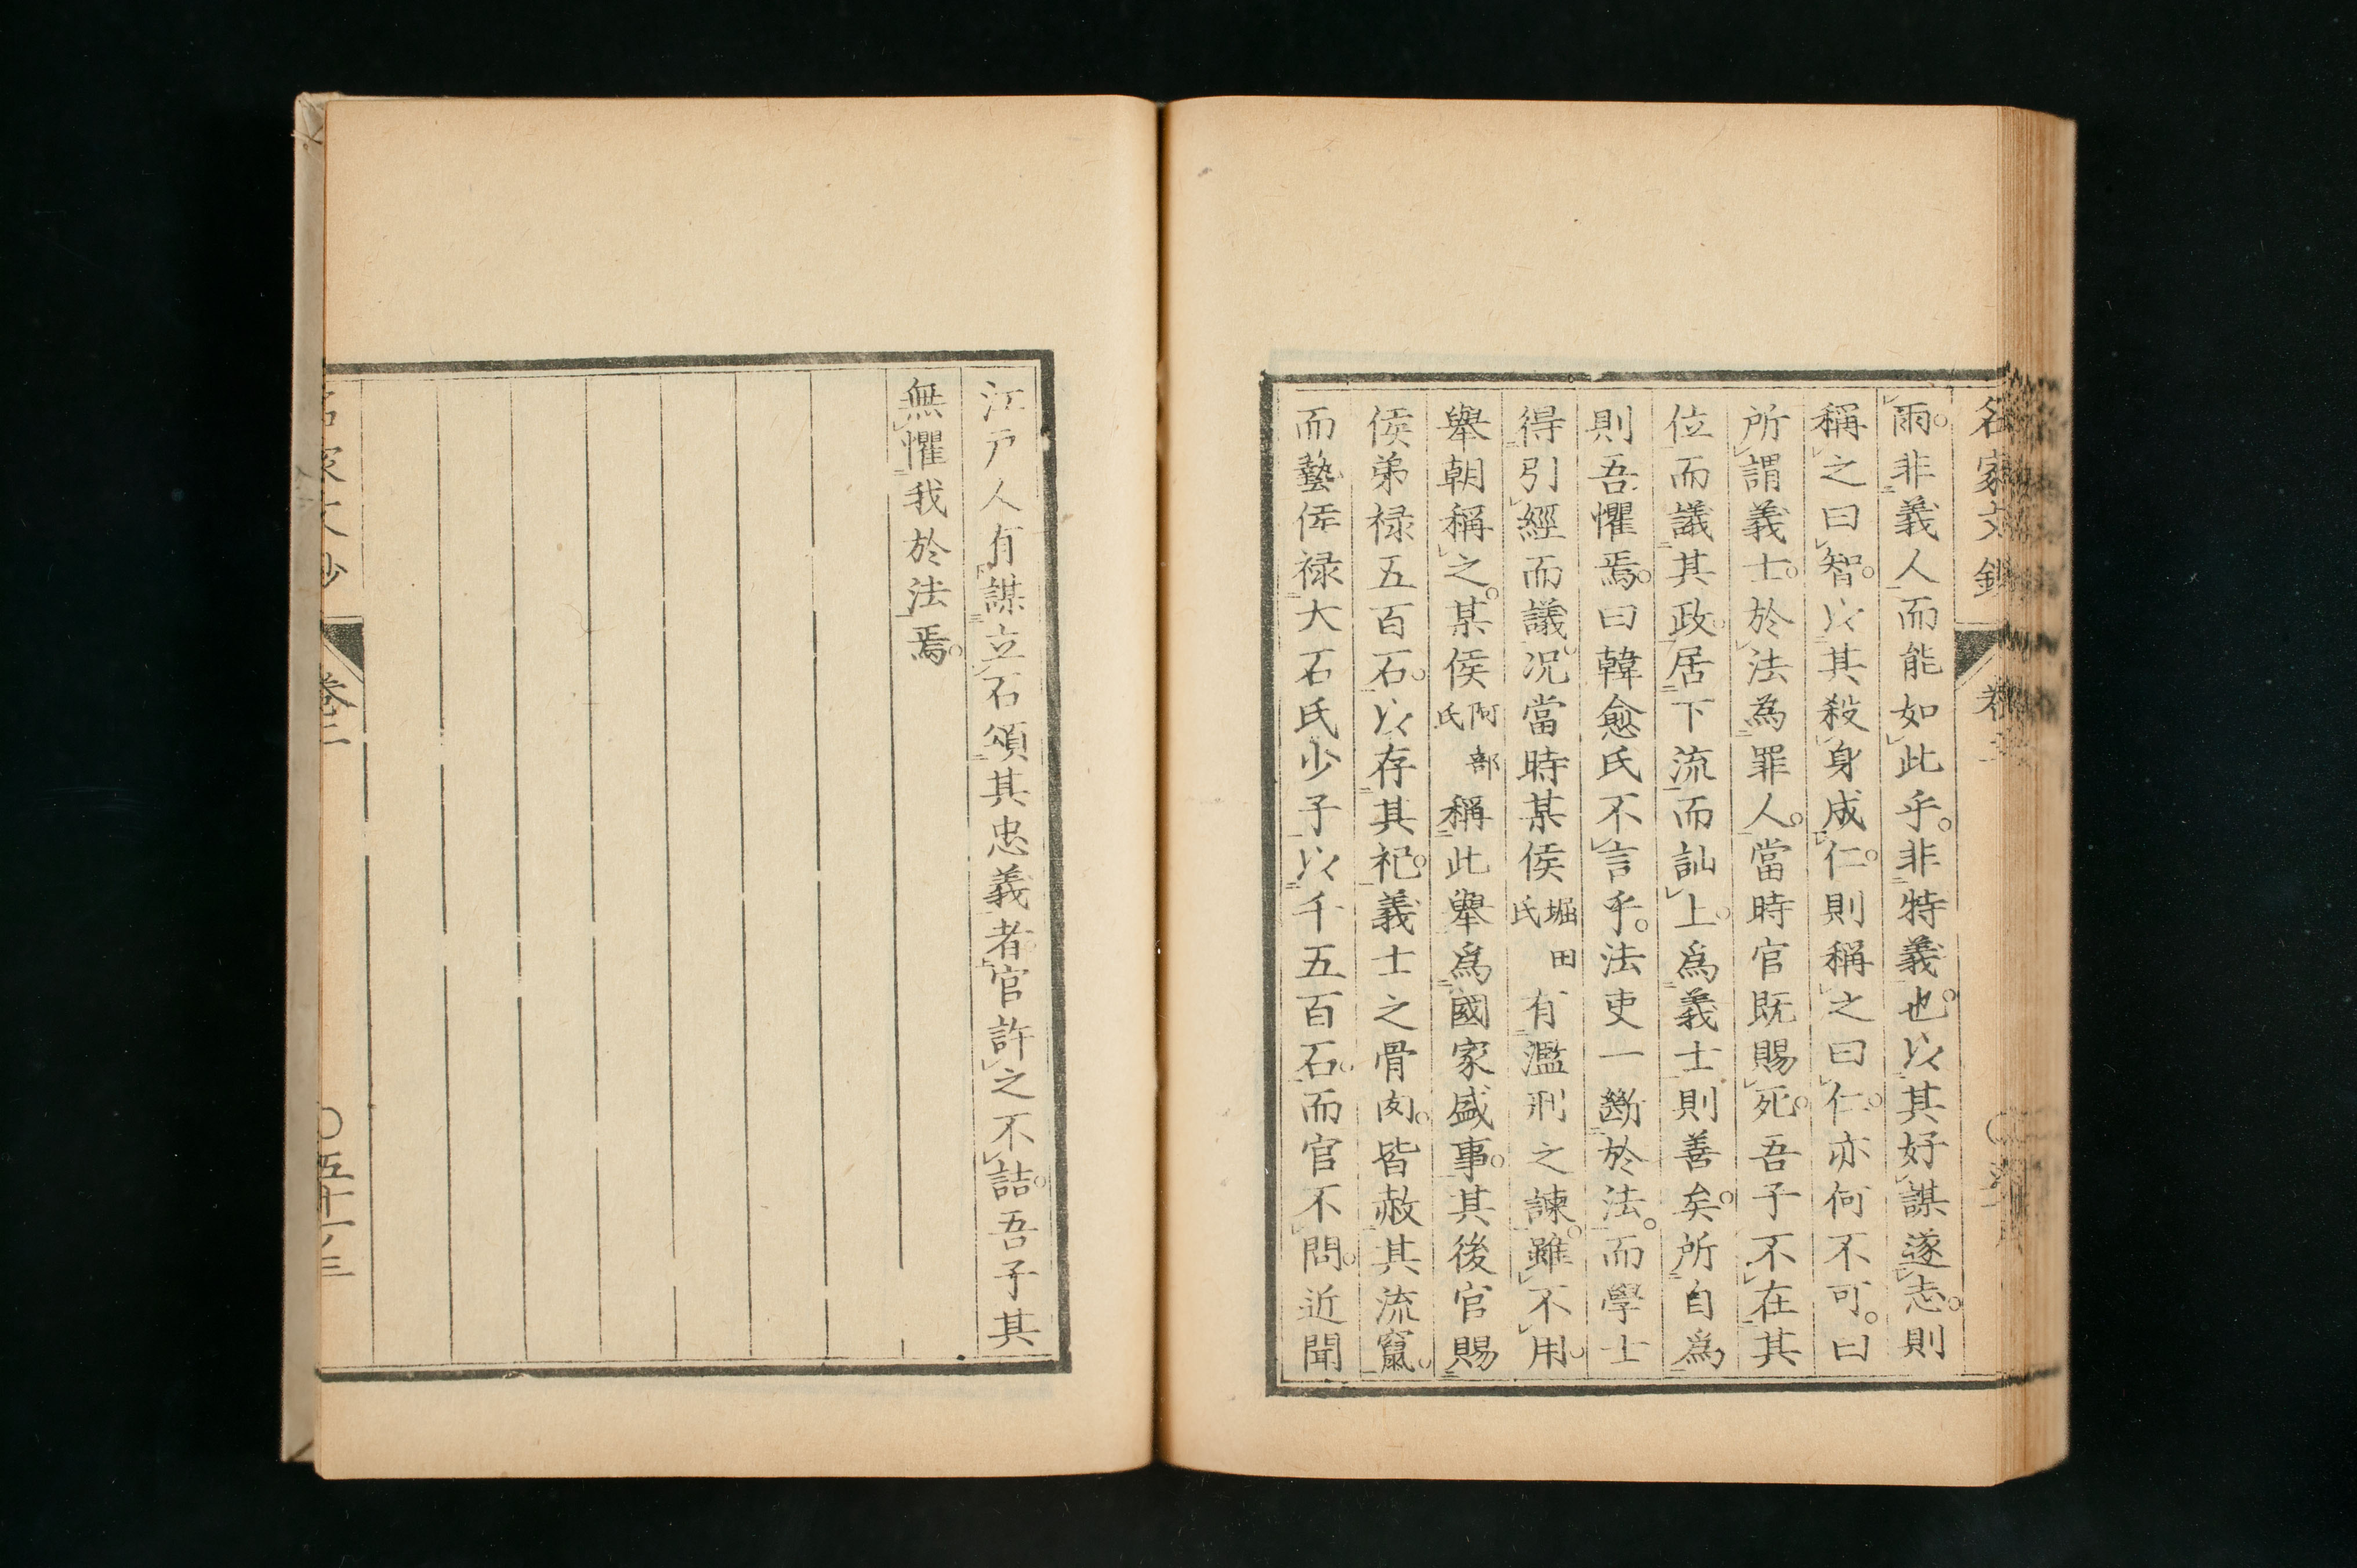 名家文鈔 卷二
雨。非義人而能如此乎。非特義也。以其好謀遂志。則
稱之曰智。以其殺身成仁。則稱之曰仁。亦何不可。曰
所謂義士。於法為罪人。當時官既賜死。吾子不在其
位而議其政。居下流而訕上。為義士則善矣。所自為
則吾懼焉。曰韓愈氏不言乎。法吏一斷於法。而學士
得引經而議。况當時某侯堀田氏有濫刑之諫。雖不用。
舉朝稱之。某侯阿部氏稱此舉為國家盛事。其後官賜
侯弟祿五百石。以存其祀。義士之骨肉。皆赦其流竄。
而藝侯祿大石氏少子以千五百石。而官不問。近聞
江戶人有謀立石頌其忠義者。官許之不詰。吾子其
無懼我於法焉。
名家文鈔 卷二 〇五十一ノ三